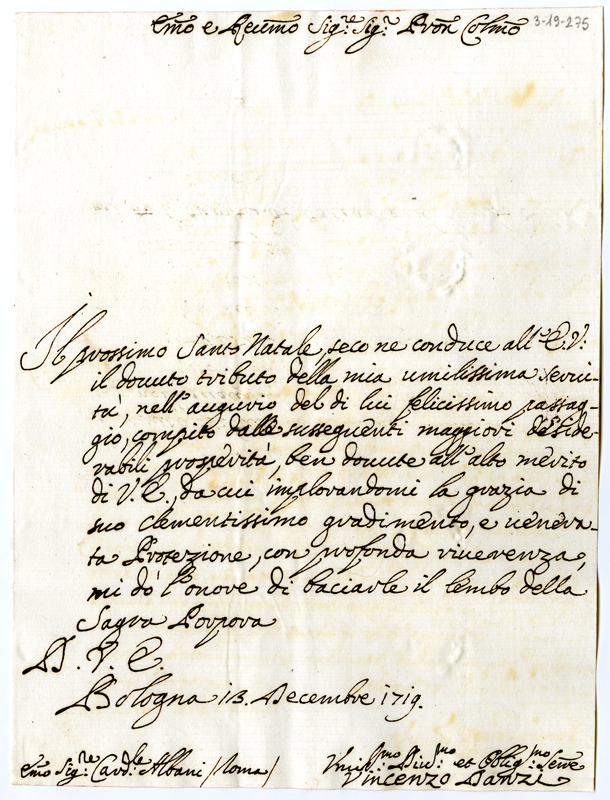 Emo e Reumo Sig:re Sig:r Pron Colmo
3-19-275
Il prossimo Santo Natale seco ne conduce all' E.V:
il douuto tributo della mia umilissima serui-
tà, nell' augurio del di lui felicissimo passag-
gio, compito dalle susseguenti maggiori deside-
rabili prosperità, ben douute all' alto merito
di V. E., da cui implorandomi la grazia di
suo clementissimo gradimento, e uenera-
ta Protezione, con profonda riuerenza,
mi dò l'onore di baciarle il lembo della
Sagra Porpora
D. V. E.
Bologna 13. Decembre 1719.
Emo Sig:re Card:le Albani /Roma/
Vmil:mo Diu:mo et Oblig:mo Serre
Vincenzo